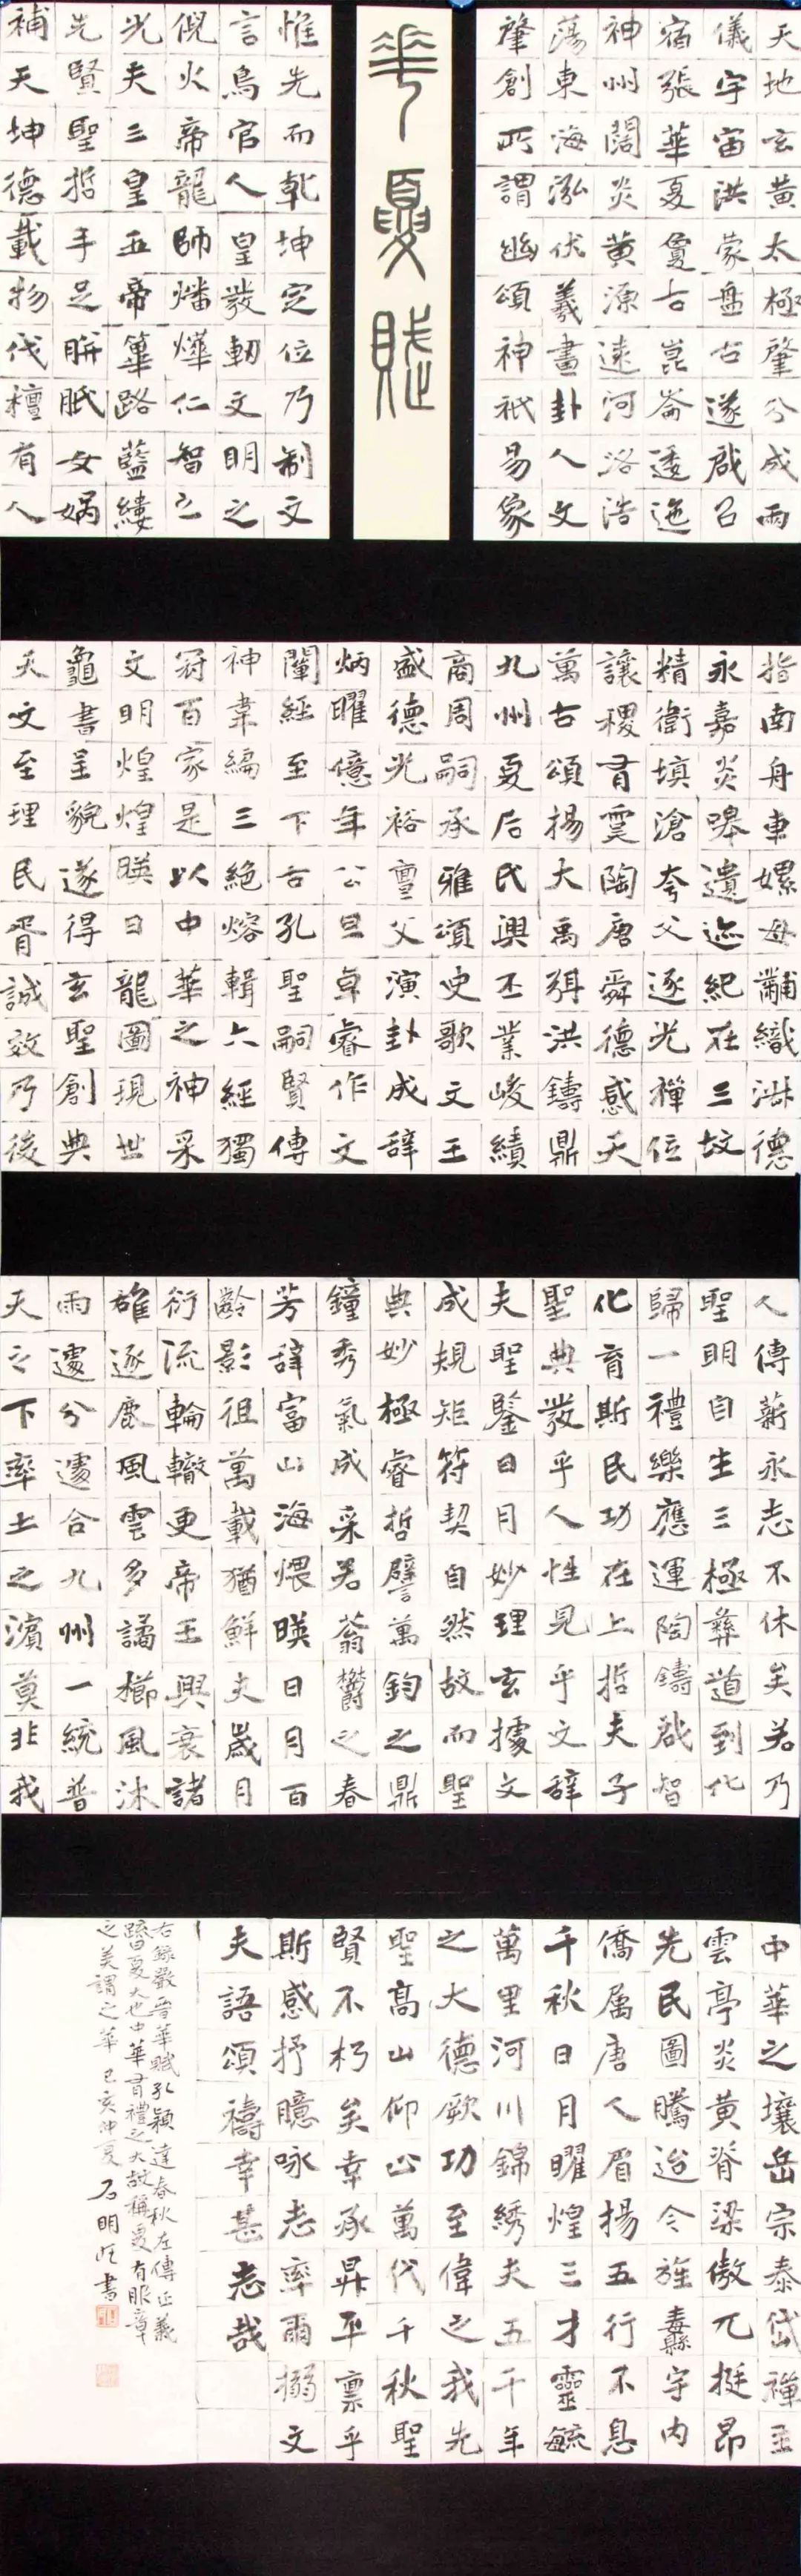 天地玄黄太極肇分成兩
儀宇宙洪蒙盘古遂啟召
宿張華夏亶古崑崙逶迤
神州闊炎黄源遠河洛浩
蕩東海泓伏羲畫卦人文
肇創所謂幽頌神祇易象
華夏賦
惟先而乾坤定位乃制文
言鳥官人皇發軔文明之
倪火帝龍師燔燁仁智之
光夫三皇五帝篳路藍縷
先賢聖哲手足胼胝女媧
補天坤德載物伐檀有人
指南舟車嫘母黼織淋德
永嘉炎皞遺迹紀在三坟
精衛填滄夸父逐光禪位
讓稷胥雯陶唐舜德感天
萬古頌揚大禹弭洪鑄鼎
九州夏后氏興丕業峻績
商周嗣承雅頌史歌文王
盛德光裕亶父演卦成辞
炳曜億年公旦卓睿作文
闡經至下古孔聖嗣賢傳
神韋編三絶熔輯六經獨
冠百家是以中華之神采
文明煌煌暎日龍圖現世
龜書呈貌遂得玄聖創典
天文至理民胥誠效乃後
人傳薪永志不休矣若乃
聖明自生三極彝道到化
歸一禮樂應運陶鑄啟智
化育斯民功在上哲夫子
聖典發乎人性見乎文辞
夫聖鑒日月妙理玄據文
成規矩符契自然故而聖
典妙極睿哲譬萬鈞之鼎
鐘秀氣成采若蓊欝之春
芳辞富山海煨暎日月百
齡影徂萬載猶鮮夫歲月
衍流輪轍更帝王興衰諸
雄逐鹿風雲多譎櫛風沐
雨遽分遽合九州一統普
天之下率土之濱莫非我
中華之壤岳宗泰岱禪主
雲亭炎黄脊梁傲兀挺昂
先民圖騰迨今旌纛宇内
僑属唐人眉揚五行不息
千秋日月曜煌三才靈毓
萬里河川錦綉夫五千年
之大德厥功至偉之我先
聖高山仰止萬代千秋聖
賢不朽矣幸承昇平禀乎
斯感抒臆咏志率爾搦文
夫語頌禱幸甚志哉
右録嚴晋華賦孔穎達春秋左傳正義
䟽曰夏大也中華有禮之大故稱夏有服章
之美謂之華 己亥仲夏 石明 書